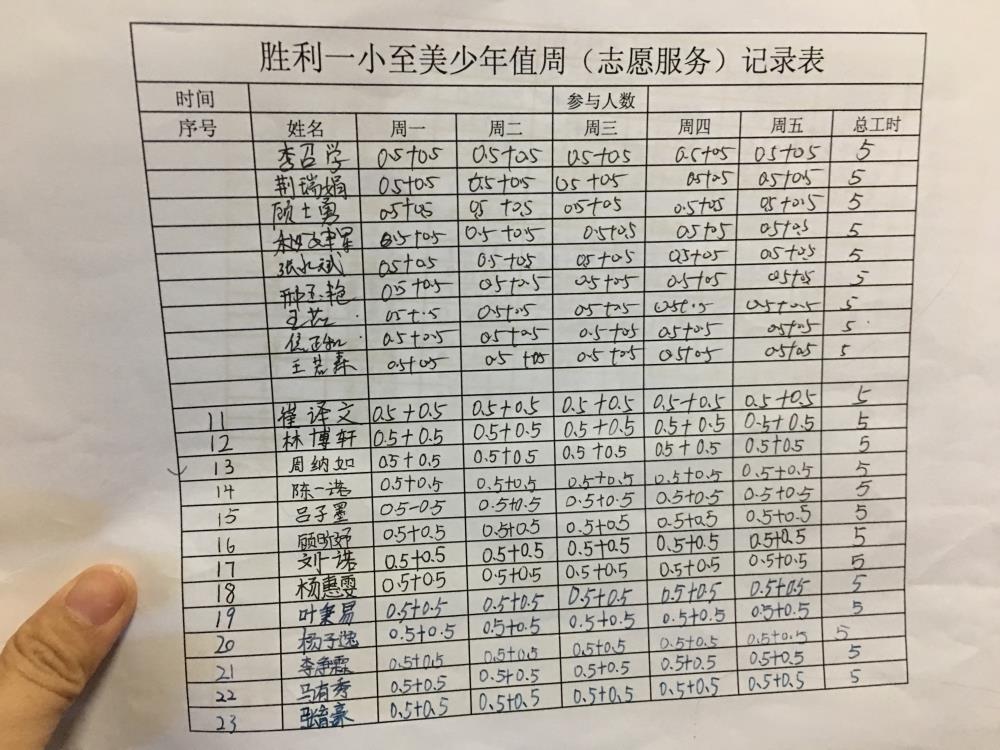 胜利一小至美少年值周（志愿服务）记录表
时间 参与人数
序号 姓名 周一 周二 周三 周四 周五 总工时
李召学 0.5+0.5 0.5+0.5 0.5+0.5 0.5+0.5 0.5+0.5 5
荆瑞娟 0.5+0.5 0.5+0.5 0.5+0.5 0.5+0.5 0.5+0.5 5
顾士勇 0.5+0.5 0.5+0.5 0.5+0.5 0.5+0.5 0.5+0.5 5
0.5+0.5 0.5+0.5 0.5+0.5 0.5+0.5 0.5+0.5 5
张 斌 0.5+0.5 0.5+0.5 0.5+0.5 0.5+0.5 0.5+0.5 5
邢玉艳 0.5+0.5 0.5+0.5 0.5+0.5 0.5+0.5 0.5+0.5 5
王 0.5+.5 0.5+0.5 0.5+0.5 0.5+.5 0.5+0.5 5
0.5+0.5 0.5+0.5 0.5+0.5 0.5+0.5 0.5+0.5 5
王若森 0.5+0.5 0.5+0.5 0.5+0.5 0.5+0.5 0.5+0.5 5
11 崔译文 0.5+0.5 0.5+0.5 0.5+0.5 0.5+0.5 0.5+0.5 5
12 林博轩 0.5+0.5 0.5+0.5 0.5+0.5 0.5+0.5 0.5+0.5 5
13 周纳如 0.5+0.5 0.5+0.5 0.5+0.5 0.5+0.5 0.5+0.5 5
14 陈一诺 0.5+0.5 0.5+0.5 0.5+0.5 0.5+0.5 0.5+0.5 5
15 吕子墨 0.5-0.5 0.5+0.5 0.5+0.5 0.5+0.5 0.5+0.5 5
16 顾昕妤 0.5+0.5 0.5+0.5 0.5+0.5 0.5+0.5 0.5+0.5 5
17 刘一诺 0.5+0.5 0.5+0.5 0.5+0.5 0.5+0.5 0.5+0.5 5
18 杨惠雯 0.5+0.5 0.5+0.5 0.5+0.5 0.5+0.5 0.5+0.5 5
19 叶秉易 0.5+0.5 0.5+0.5 0.5+0.5 0.5+0.5 0.5+0.5 5
20 杨子逸 0.5+0.5 0.5+0.5 0.5+0.5 0.5+0.5 0.5+0.5 5
21 李 霖 0.5+0.5 0.5+0.5 0.5+0.5 0.5+0.5 0.5+0.5 5
22 马有秀 0.5+0.5 0.5+0.5 0.5+0.5 0.5+0.5 0.5+0.5 5
23 张 豪 0.5+0.5 0.5+0.5 0.5+0.5 0.5+0.5 0.5+0.5